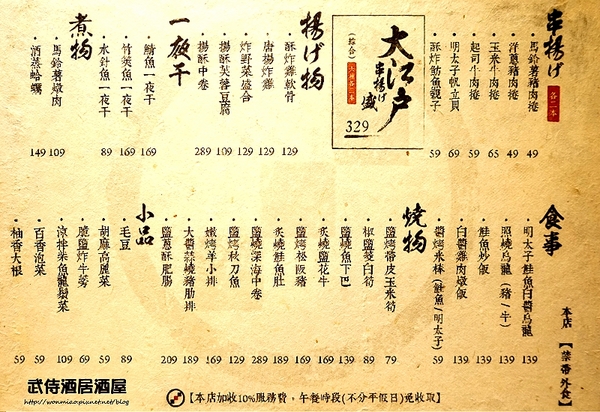 串揚げ 各二本
馬鈴薯豬肉捲 49
洋蔥豬肉捲 49
玉米牛肉捲 65
起司牛肉捲 59
明太子帆立貝 69
酥炸魴魚親子 59
大江戶
串揚げ
盛
(綜合)
329
揚げ物
酥炸雞軟骨 129
唐揚炸雞 129
炸野菜盛合 129
揚酥芙蓉豆腐 109
揚酥中卷 289
一夜干
鯖魚一夜干 169
竹筴魚一夜干 169
水針魚一夜干 89
煮物
馬鈴薯燉肉 109
酒蒸蛤蠣 149
食事
明太子鮭魚白醬烏龍 139
照燒烏龍(豬/牛) 139
鮭魚炒飯 139
白醬雞肉燉飯 139
醬烤米棒(鮭魚/明太子) 59
燒物
鹽烤帶皮玉米筍 79
椒鹽茭白筍 89
鹽燒魚下巴 139
炙燒鹽花牛 169
鹽烤松阪豬 169
炙燒鮭魚肚 189
鹽燒深海中卷 289
鹽烤秋刀魚 129
嫩烤羊小排 169
大醬蒜燒豬肋排 189
鹽蔥酥肥腸 209
小品
毛豆 89
胡麻高麗菜 59
脆鹽炸牛蒡 69
涼拌柴魚龍鬚菜 109
百香泡菜 59
柚香大根 59
本店【禁帶外食】
【本店加收10%服務費，午餐時段(不分平假日)免收取】
武侍酒居酒屋
http://wonmiao.pixnet.net/blog